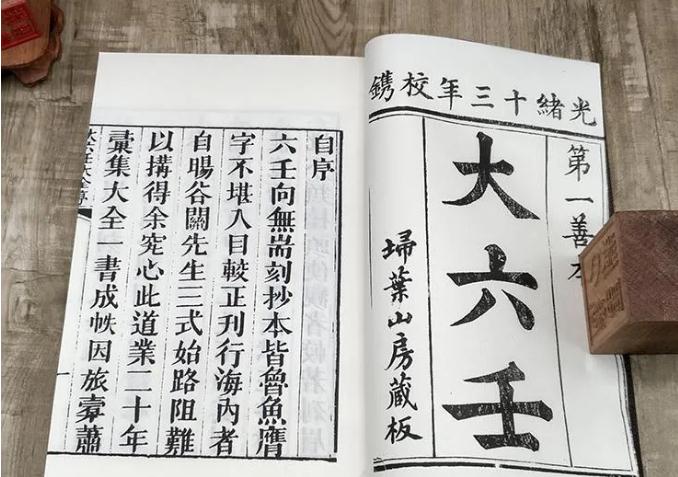 光緒十三年校鐫
第一善本
大六壬
埽葉山房藏板
自序
六壬向無耑刻抄本皆魯魚膺
字不堪入目較正刊行海內者
自暘谷關先生三式始路阻難
以搆得余究心此道業二十年
彙集大全一書成帙因旅寓蕭
大六壬大全序